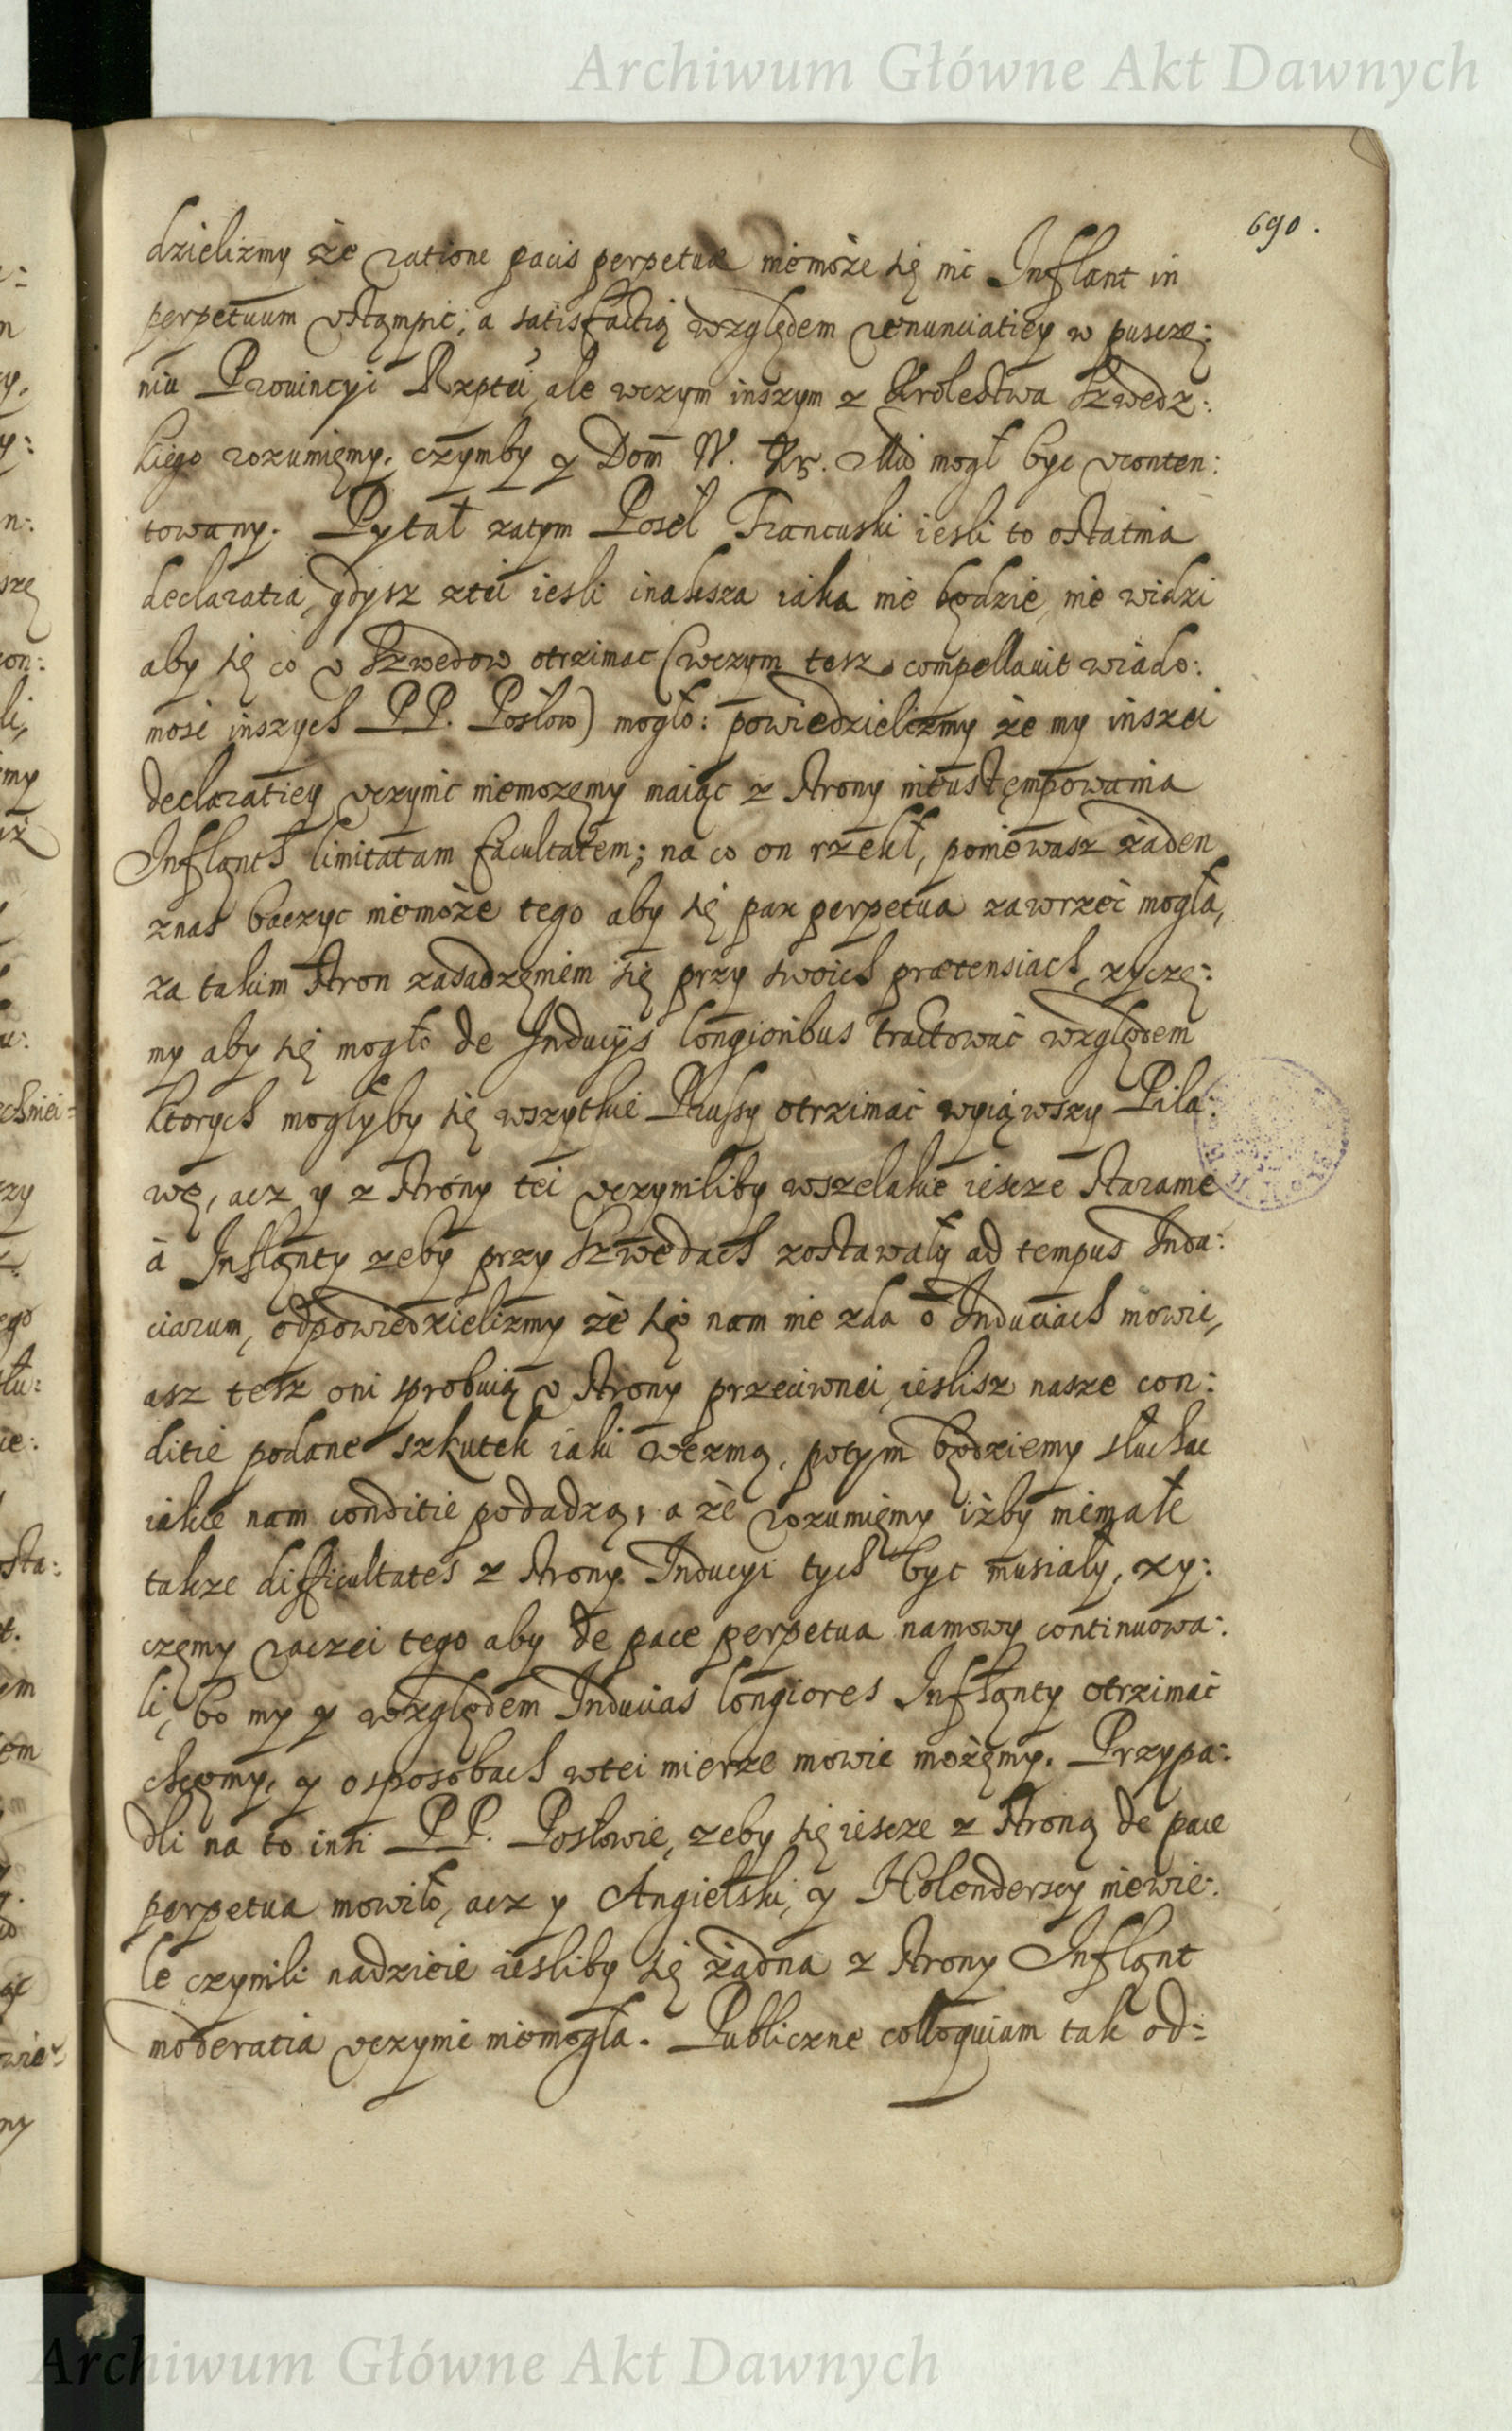 Archiwum Główne Akt Dawnych
690.
dzielizmy że ratione pacis perpetuæ niemoże się nic Inflant in
perpetuum ustąmpić, a satisfactią względem renunciatiey w puscze:
niu Prouincyi Rzptei, ale wczym inszym z Krolestwa Szwedz:
kiego rozumięmy, czymby y Dom W. Kr. Mci mogł byc vconten:
towany. Pytał zatym Poseł Francuski iesli to ostatnia
declaratia, gdysz ztei iesli inaksza iaka nie będzie, nie widzi
aby się co v Szwedow otrzimac (wczym tesz compellauit wiado:
mosc inszych PP. Posłow) mogło: powiedzielizmy że my inszei
declaratiey vczynic niemozęmy maiąc z strony nieustęmpowania
Inflanth limitatam facultatem; na co on rzekł, poniewasz żaden
znas baczyc niemoże tego aby się pax perpetua zawrzeć mogła,
za takim stron zasadzęniem się przy swoich prætensiach, zyczę:
my aby się mogło de Inducijs longioribus tractować względem
ktorych mogłyby się wszytkie Prussy otrzimać wyiąwszy Pila:
wę, acz y z strony tei vczyniliby wszelakie iescze staranie
à Inflanty zeby przy Szwedach zostawały ad tempus Indu:
ciarum, odpowiedzielizmy że się nam nie zda o Induciach mowic,
asz tesz oni sprobuią v strony przeciwnei, ieslisz nasze con:
ditie podane szkutek iaki wezmą, potym będziemy słuchac
iakie nam conditie podadzą, a że rozumięmy iżby niemałe
takze difficultates z strony Inducyi tych byc musiały, zy:
częmy raczei tego aby de pace perpetua namowy continuowa:
li, bo my y względem Inducias longiores Inflanty otrzimać
chcęmy, y osposobach wtei mierze mowic możęmy. Przypa:
dli na to insi PP. Posłowie, zeby się iescze z stroną de pace
perpetua mowiło, acz y Angielski, y Holenderscy niewie:
le czynili nadzieie iesliby się żadna z strony Inflant
moderatia vczynic niemogła. Publiczne colloquium tak od:
Archiwum Główne Akt Dawnych